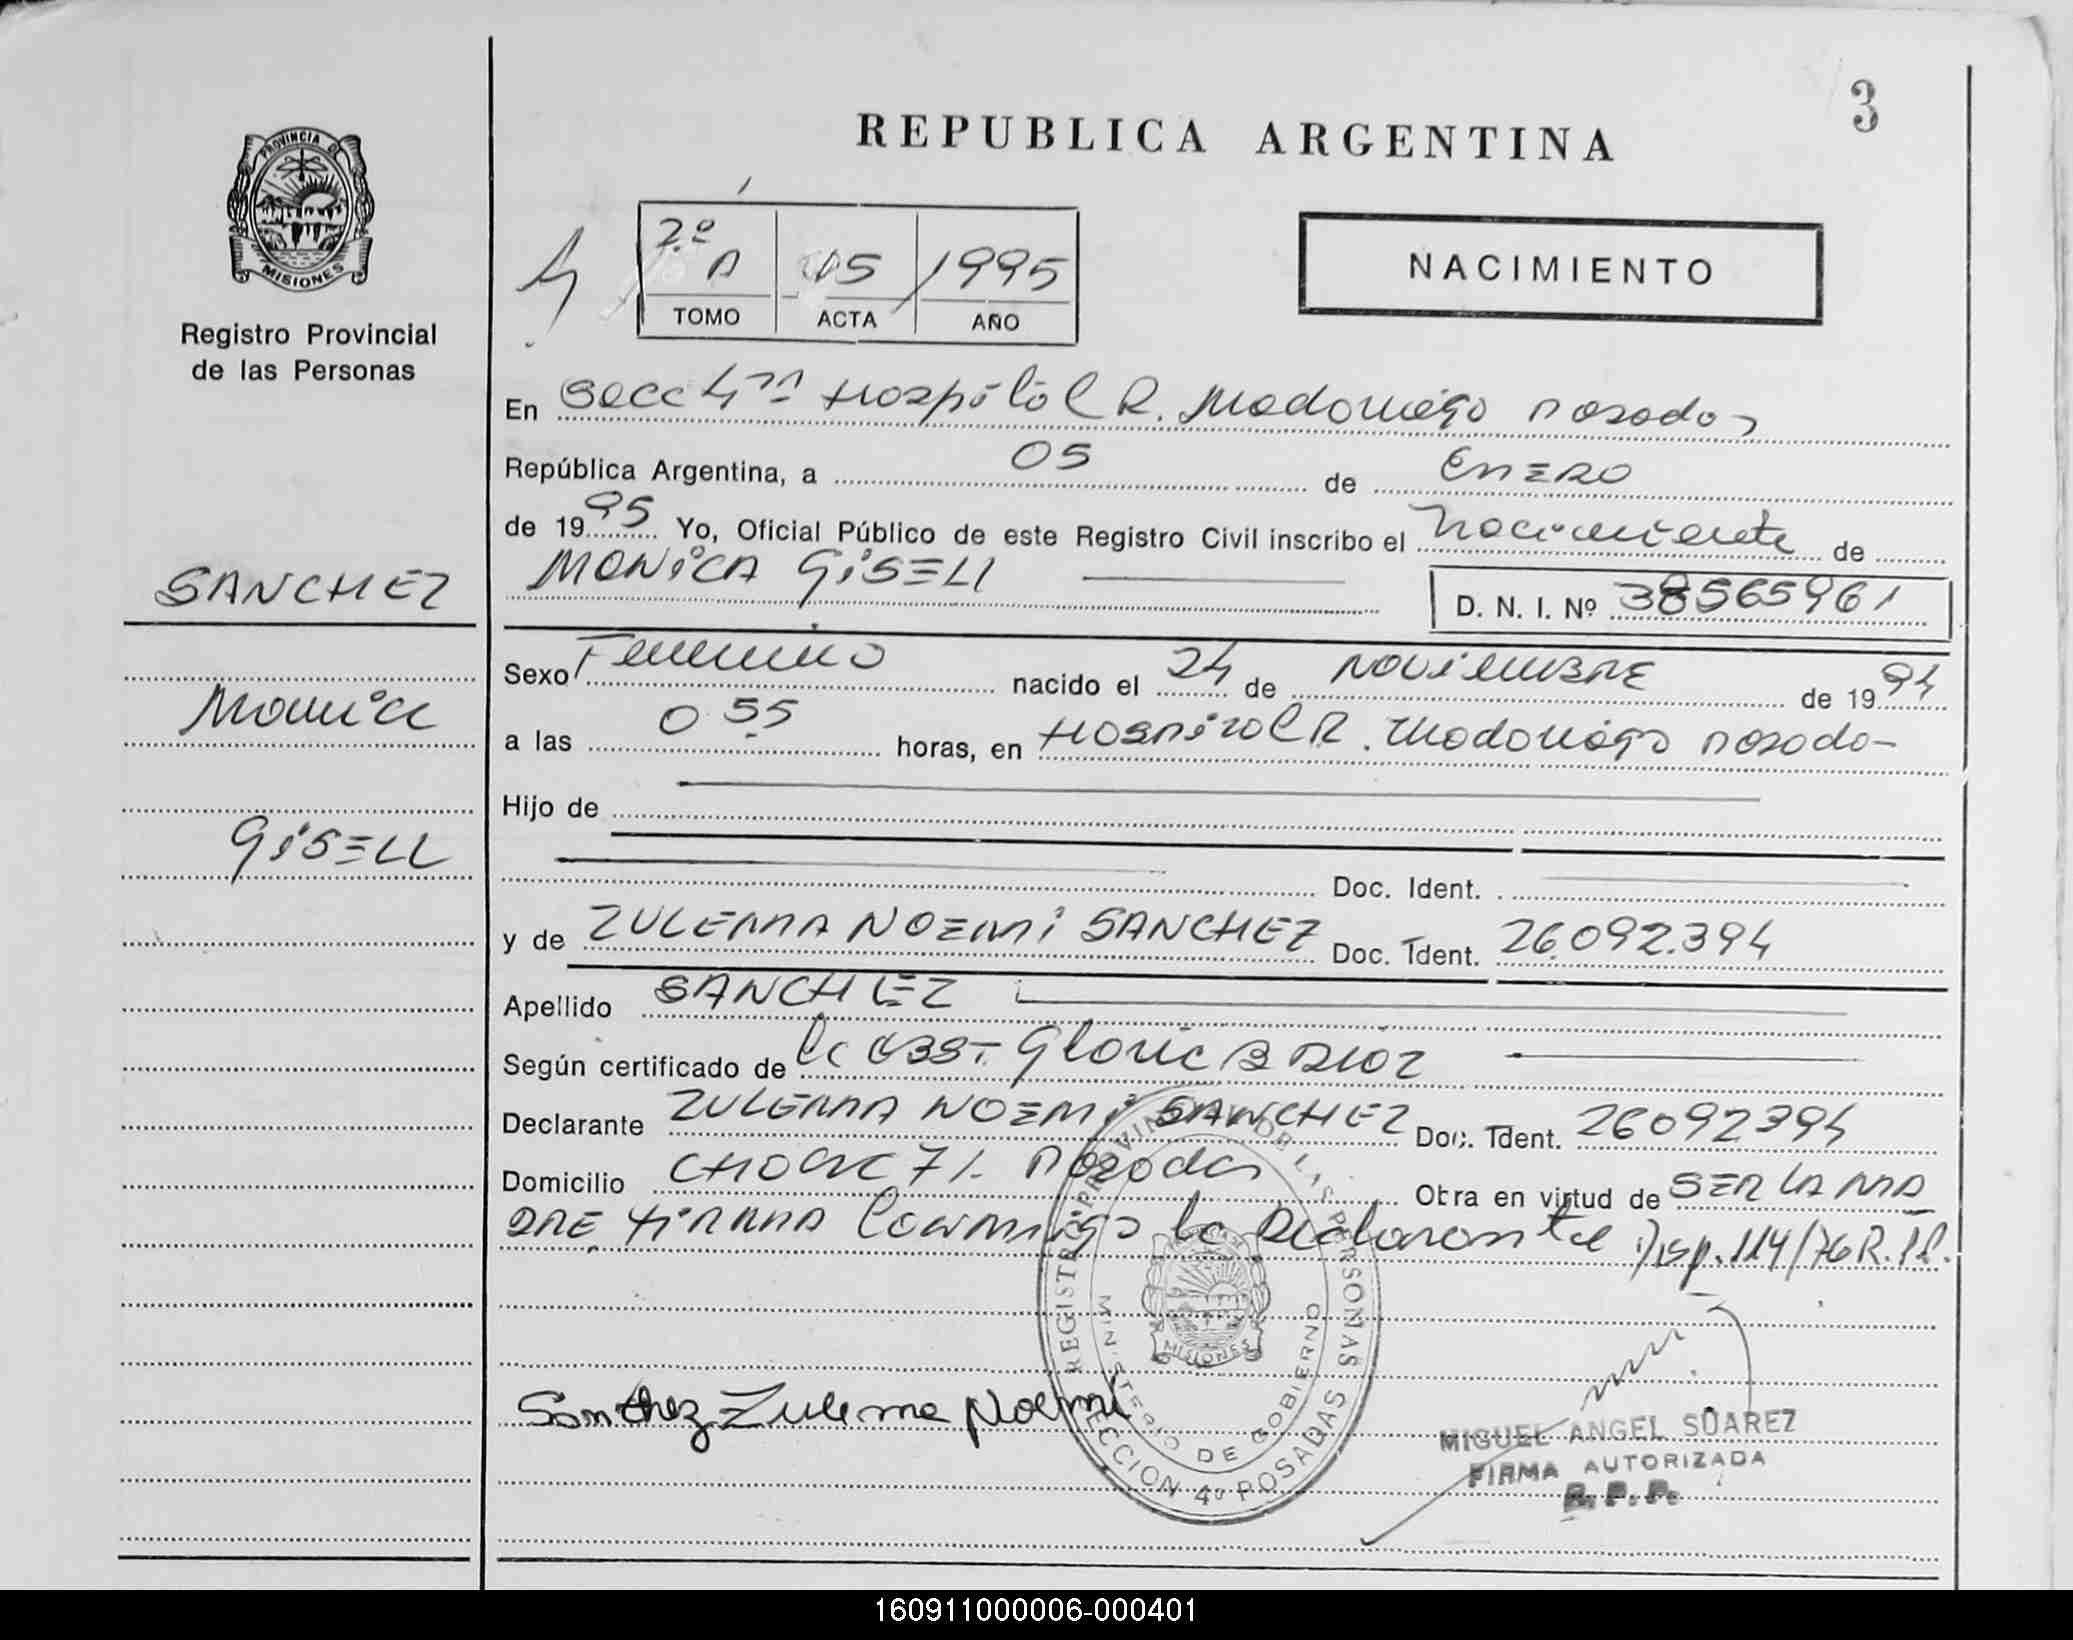 3
REPUBLICA ARGENTINA
PROVINCIA D
MISIONES
Registro Provincial
de las Personas
4
2º A 05 1995
TOMO ACTA AÑO
NACIMIENTO
En Secc 4ta Hospital R. Madariaga Posadas
República Argentina, a 05 de ENERO
de 1995 Yo, Oficial Público de este Registro Civil inscribo el Nacimiento de
SANCHEZ
MONICA GISELL
D. N. I. Nº 38565961
Sexo Femenino nacido el 24 de NOVIEMBRE de 1994
Monica
a las 0 55 horas, en Hospital R. Madariaga Posadas
Hijo de
GISELL
Doc. Ident.
y de ZULEMA NOEMI SANCHEZ Doc. Ident. 26.092.394
Apellido SANCHEZ
Según certificado de la OBST Gloria B Diaz
Declarante ZULEMA NOEMI SANCHEZ Doc. Ident. 26092394
Domicilio 71. Posadas Obra en virtud de SER LA MA
DRE FIRMA conmigo la Declarante Disp. 114/76 R.P.P.
REGISTRO PROVINCIAL DE LAS PERSONAS
MINISTERIO DE GOBIERNO
MISIONES
SECCION 4º POSADAS
Sanchez Zulema Noemi
MIGUEL ANGEL SUAREZ
FIRMA AUTORIZADA
R. P. P.
160911000006-000401